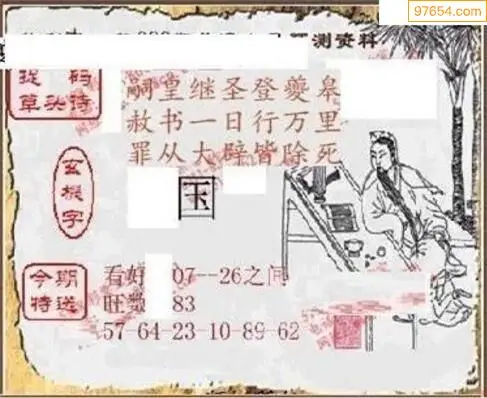 97654.com
测资料
捉码
草头诗
嗣堂继圣登夔皋
赦书一日行万里
罪从大辟皆除死
玄机字
国
今期
特送
看好 07--26之间
旺数 83
57-64-23-10-89-62